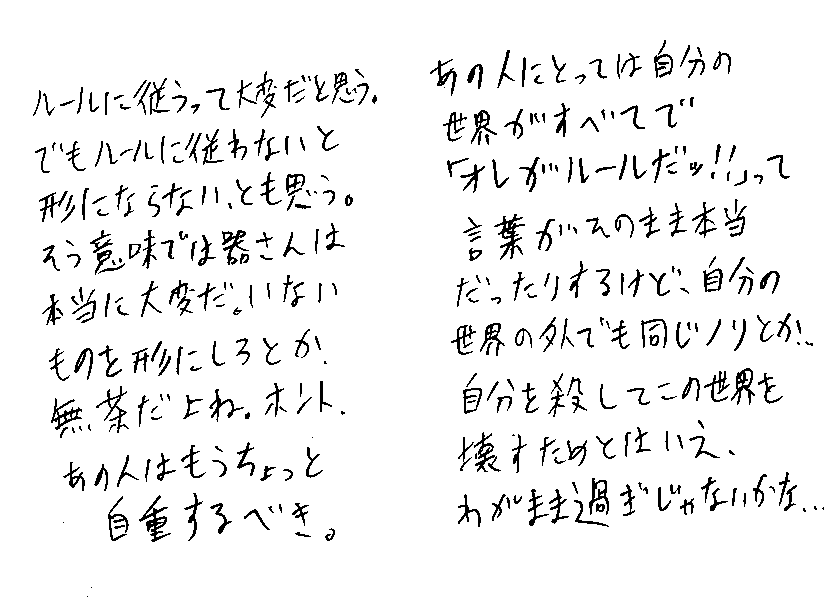 ルールに従うって大変だと思う。
でもルールに従わないと
形にならない、とも思う。
そう意味では器さんは
本当に大変だ。いない
ものを形にしろとか
無茶だよね。ホント、
あの人はもうちょっと
自重するべき。
あの人にとっては自分の
世界がすべてで
「オレがルールだッ!!」って
言葉がそのまま本当
だったりするけど、自分の
世界の外でも同じノリとか、
自分を殺してこの世界を
壊すためとはいえ、
わがまま過ぎじゃないかな...